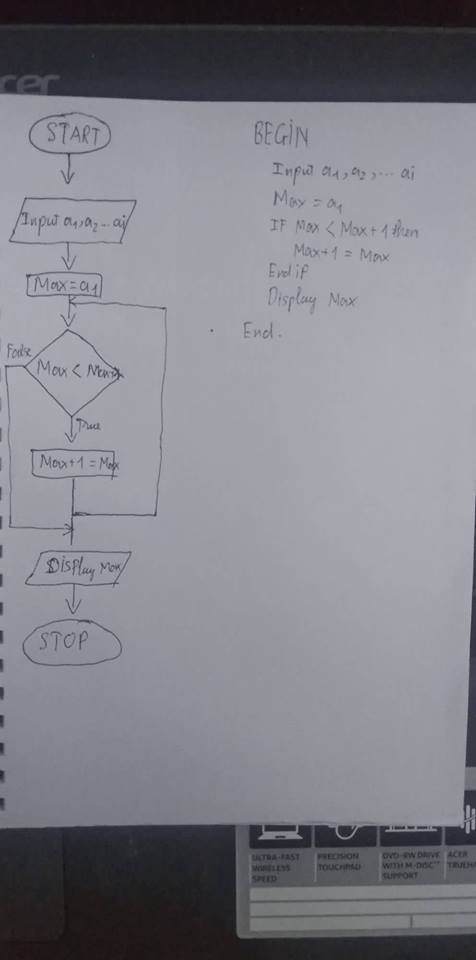 cer
START
Input a1, a2 ... ai
Max = a1
False
Max < Max+1
True
Max+1 = Max
Display Max
STOP
BEGIN
Input a1, a2, ... ai
Max = a1
IF Max < Max+1 then
Max+1 = Max
Endif
Display Max
End.
ULTRA-FAST
WIRELESS
SPEED
PRECISION
TOUCHPAD
DVD-RW DRIVE
WITH M-DISC™
SUPPORT
ACER
TRUEHA